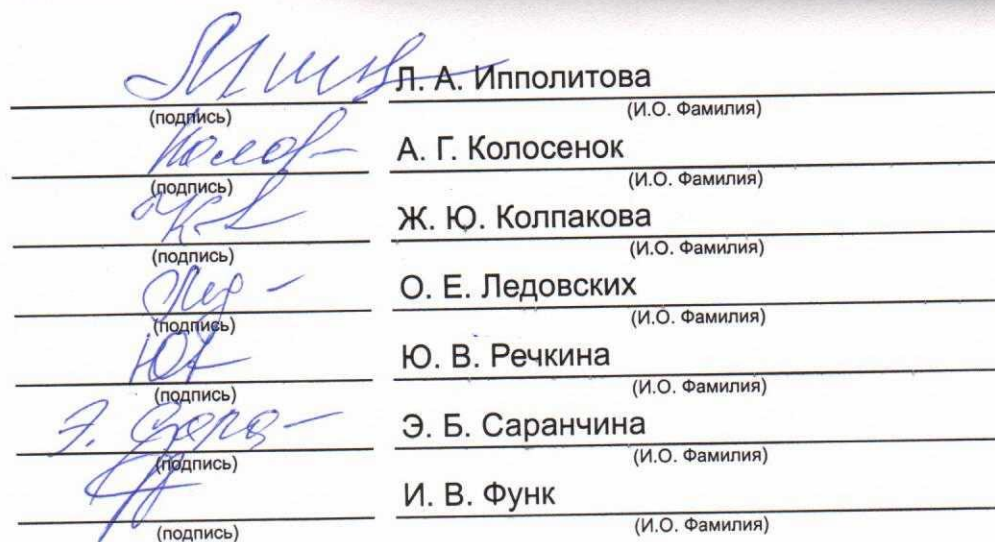 Л. А. Ипполитова
(подпись) (И.О. Фамилия)
А. Г. Колосенок
(подпись) (И.О. Фамилия)
Ж. Ю. Колпакова
(подпись) (И.О. Фамилия)
О. Е. Ледовских
(подпись) (И.О. Фамилия)
Ю. В. Речкина
(подпись) (И.О. Фамилия)
Э. Б. Саранчина
(подпись) (И.О. Фамилия)
И. В. Функ
(подпись) (И.О. Фамилия)